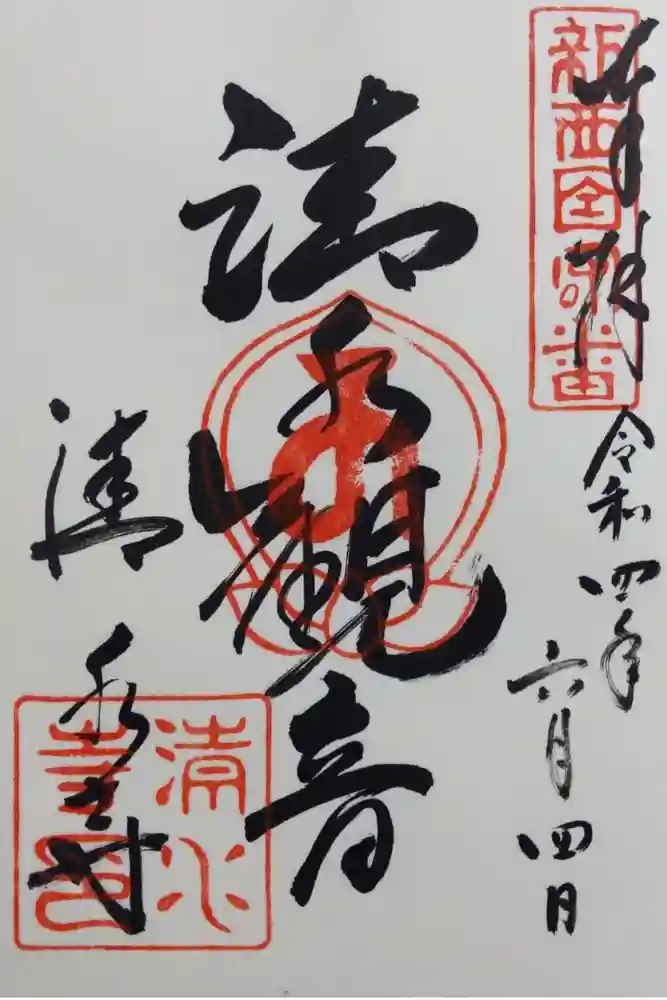 奉拝
新西国客番
令和四年
六月四日
清水観音
清水寺
清水寺印